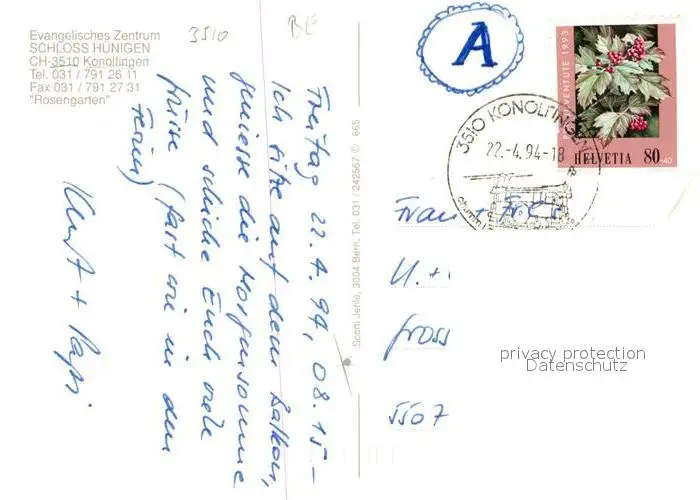 Evangelisches Zentrum
SCHLOSS HÜNIGEN
CH-3510 Konolfingen
Tel. 031 / 791 26 11
Fax 031 / 791 27 31
"Rosengarten"
3510
BE
Freitag 22.4.94, 08.15 –
Ich sitze auf dem Balkon,
geniesse die Morgensonne
und schicke Euch viele
Grüsse (fast wie in den
Ferien)
Kurt + Papi
Scorti Jenlo, 3004 Bern. Tel. 031 / 242567 © 665
A
3510 KONOLFINGEN
22.-4.94-18
PRO JUVENTUTE 1993
HELVETIA 80+40
Frau + 
U. +
Gross
5507
privacy protection
Datenschutz